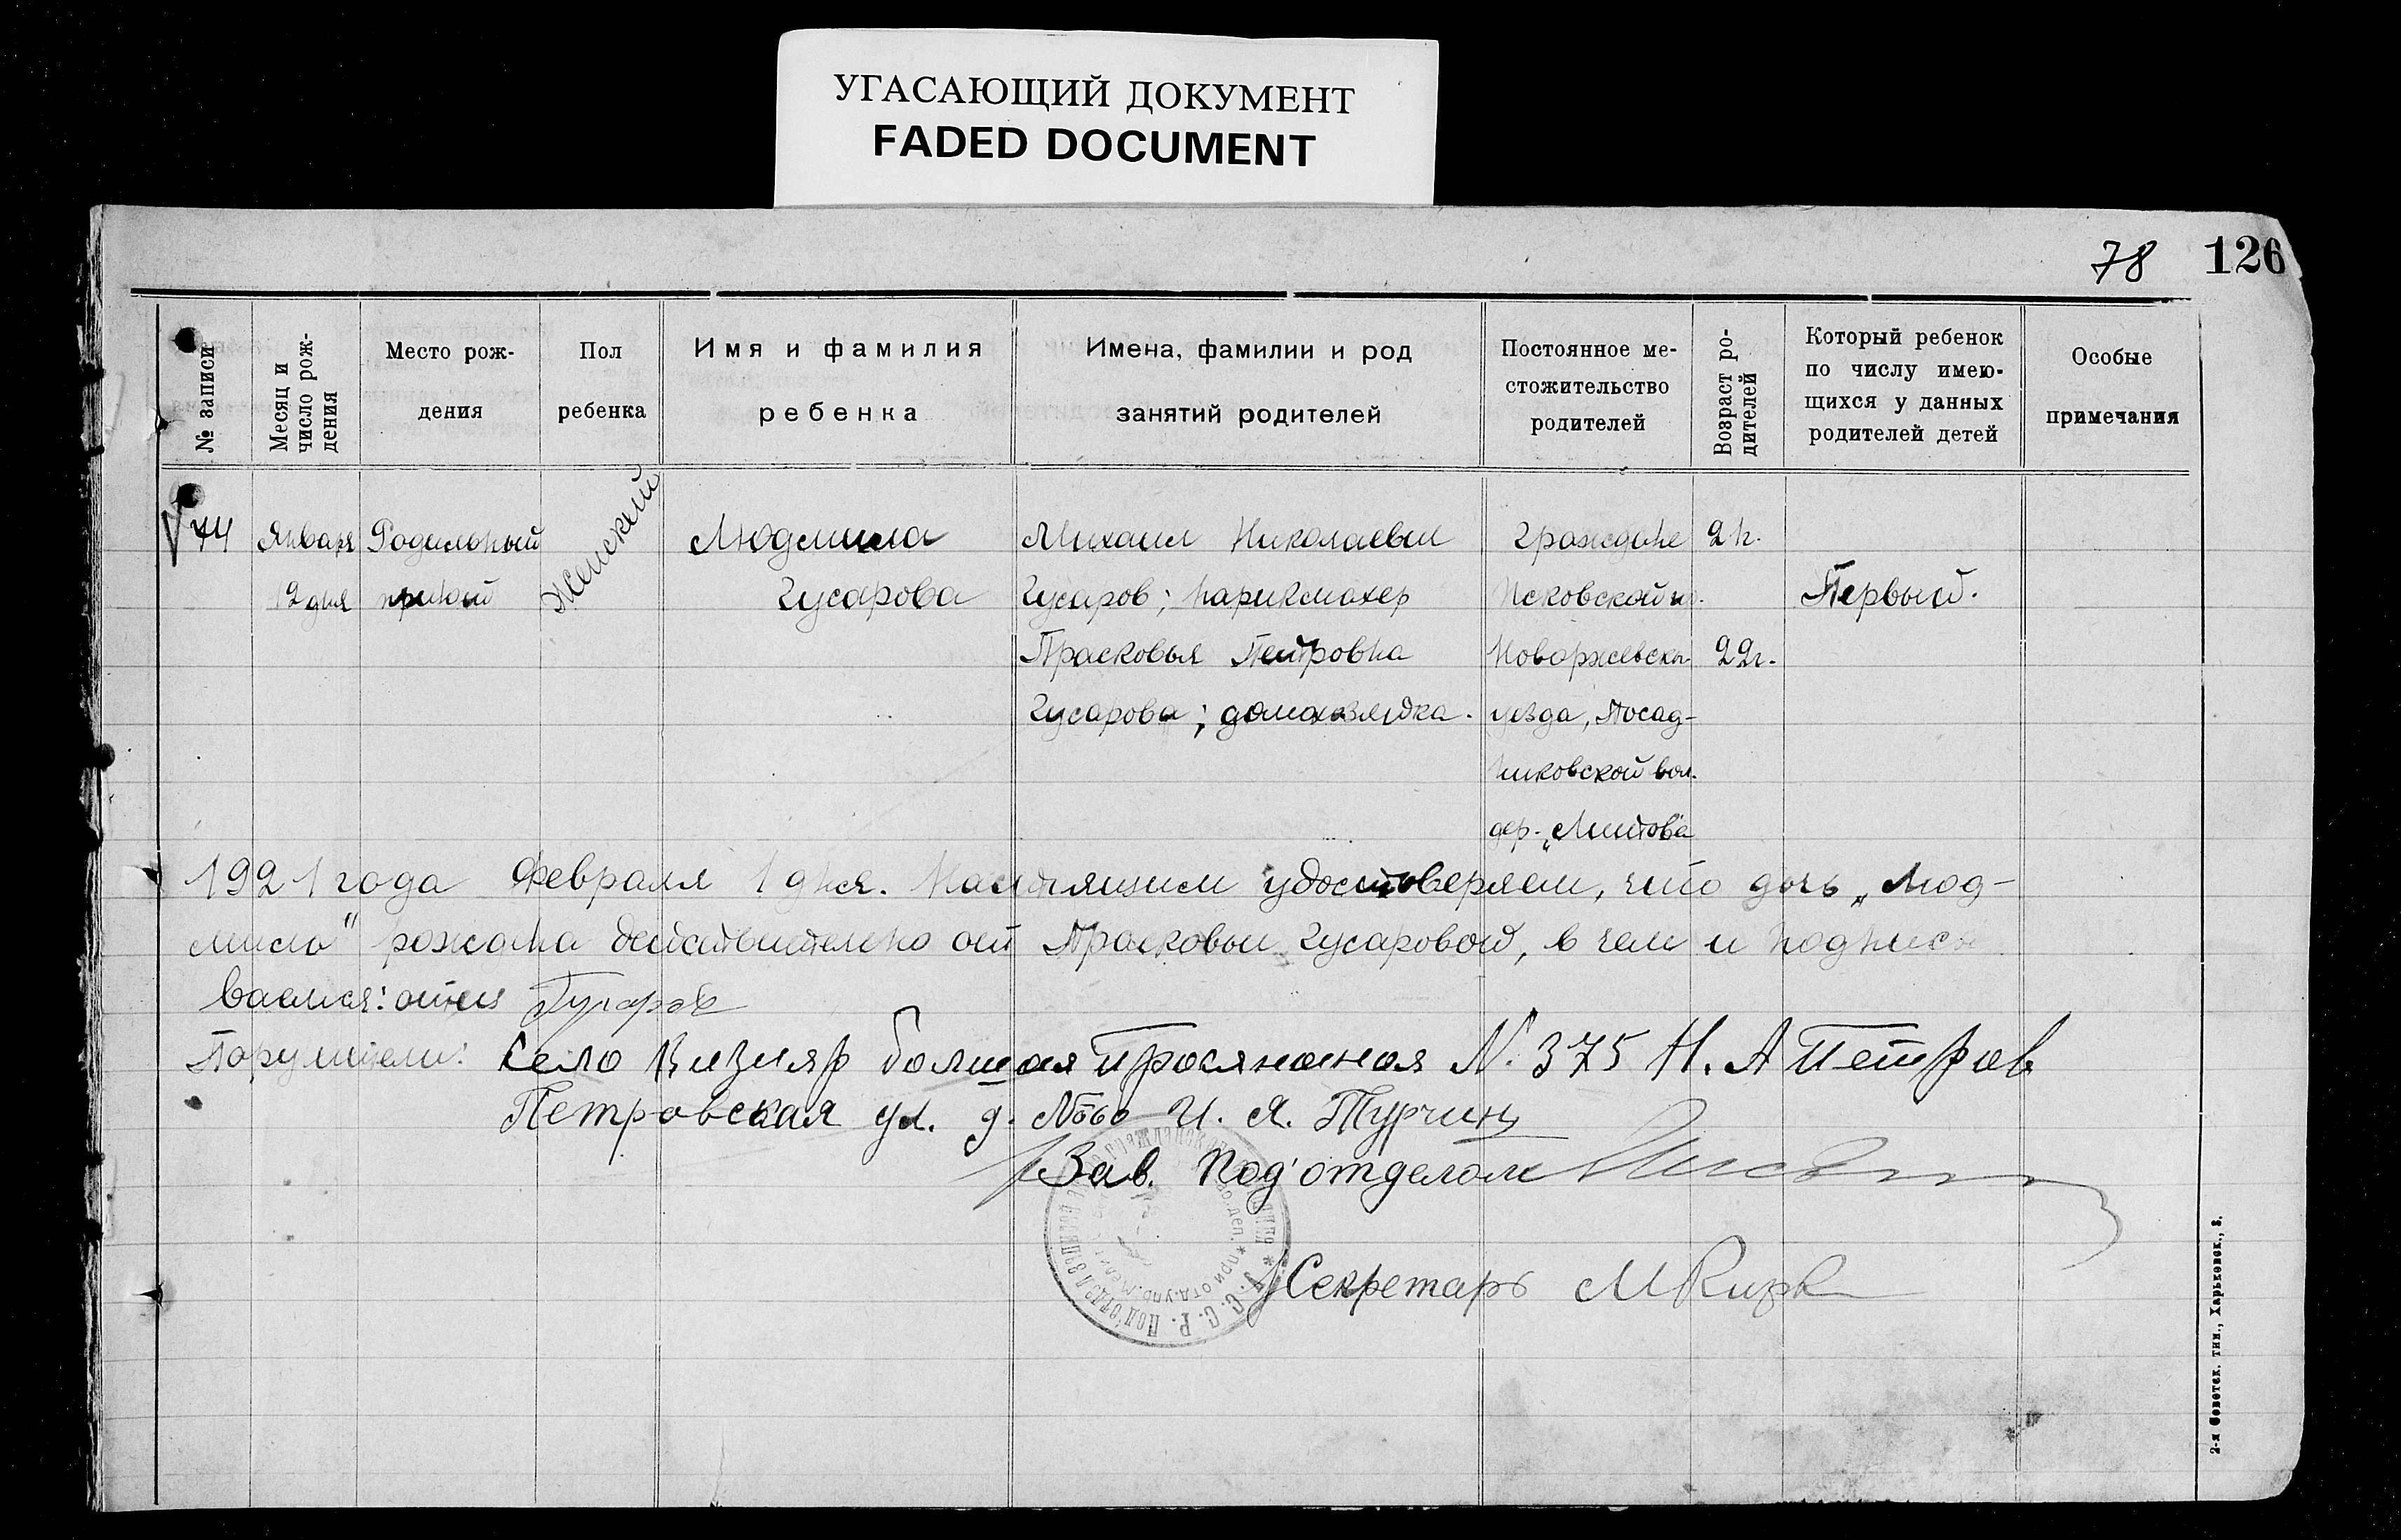 УГАСАЮЩИЙ ДОКУМЕНТ
FADED DOCUMENT
78 126
№ записи
Месяц и
число рож-
дения
Место рож-
дения
Пол
ребенка
Имя и фамилия
ребенка
Имена, фамилии и род
занятий родителей
Постоянное ме-
стожительство
родителей
Возраст ро-
дителей
Который ребенок
по числу имею-
щихся у данных
родителей детей
Особые
примечания
74
Января
12 дня
Родильный
приют
Женский
Людмила
Гусарова
Михаил Николаевич
Гусаров; парикмахер
Прасковья Петровна
Гусарова; домохозяйка.
Граждане
Псковской
Новоржевск.
уезда, Посад-
никовской вол.
дер.
22г.
Первый.
1921 года Февраля 1 дня. Настоящим удостоверяем, что дочь „Люд-
мила" рождена действительно от Прасковьи Гусаровой, в чем и подписы
ваемся: отец Гусаров
Поручители: Село Большая N. 375 Н. А Петров
Петровская ул. д. И. Я. Турчин
Зав. Под'отделом
Секретарь
2-я Советск. тип., Харьковск., 3.